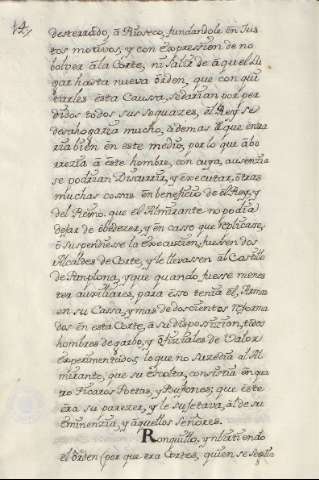 14,,
desterrado, â Rioseco, fundandole en Jus
tos motivos, y con expression de no
bolver â la Corte, ni salir de âquel Lu
gar hasta nueva ôrden, que con qui
tarles êsta Caussa, se darian por per
didos tôdos sus sequazes, êl Rey se
desahogaria mucho, âdemas que entra
ria bien ên este medio, por lo que âbo
rrezia â êste hombre, con cuya, ausencia
se podrian Discurrir, y executar, ôtras
muchas cossas ên beneficio de êl Rey, y
del Reino. que el Almirante no podia
dejar de ôbedezer, y ên casso que replicase,
ô suspendiese la execuzion, fuessen dos
Alcaldes de Corte, y le llevassen âl Castillo
de Pamplona, y que quando fuesse menes
ter auxiliares, para êsso tenia êl, Armas
en su Cassa, y mas de doscientos reforma
dos ên esta Corte, â su disposizion, tôdos
hombres de garbo, y ôfiziales de Valor
experimentados; lo que no suzedia al Al
mirante, que su Escolta, consistia ên qua
tro Picaros Poetas, y Bufones; que êste
êra su parezer, y le sujetava, âl de su
Eminenzia, y âquellos señores.
Ronquillo, y
el ôrden (por que era Cortes, quien se